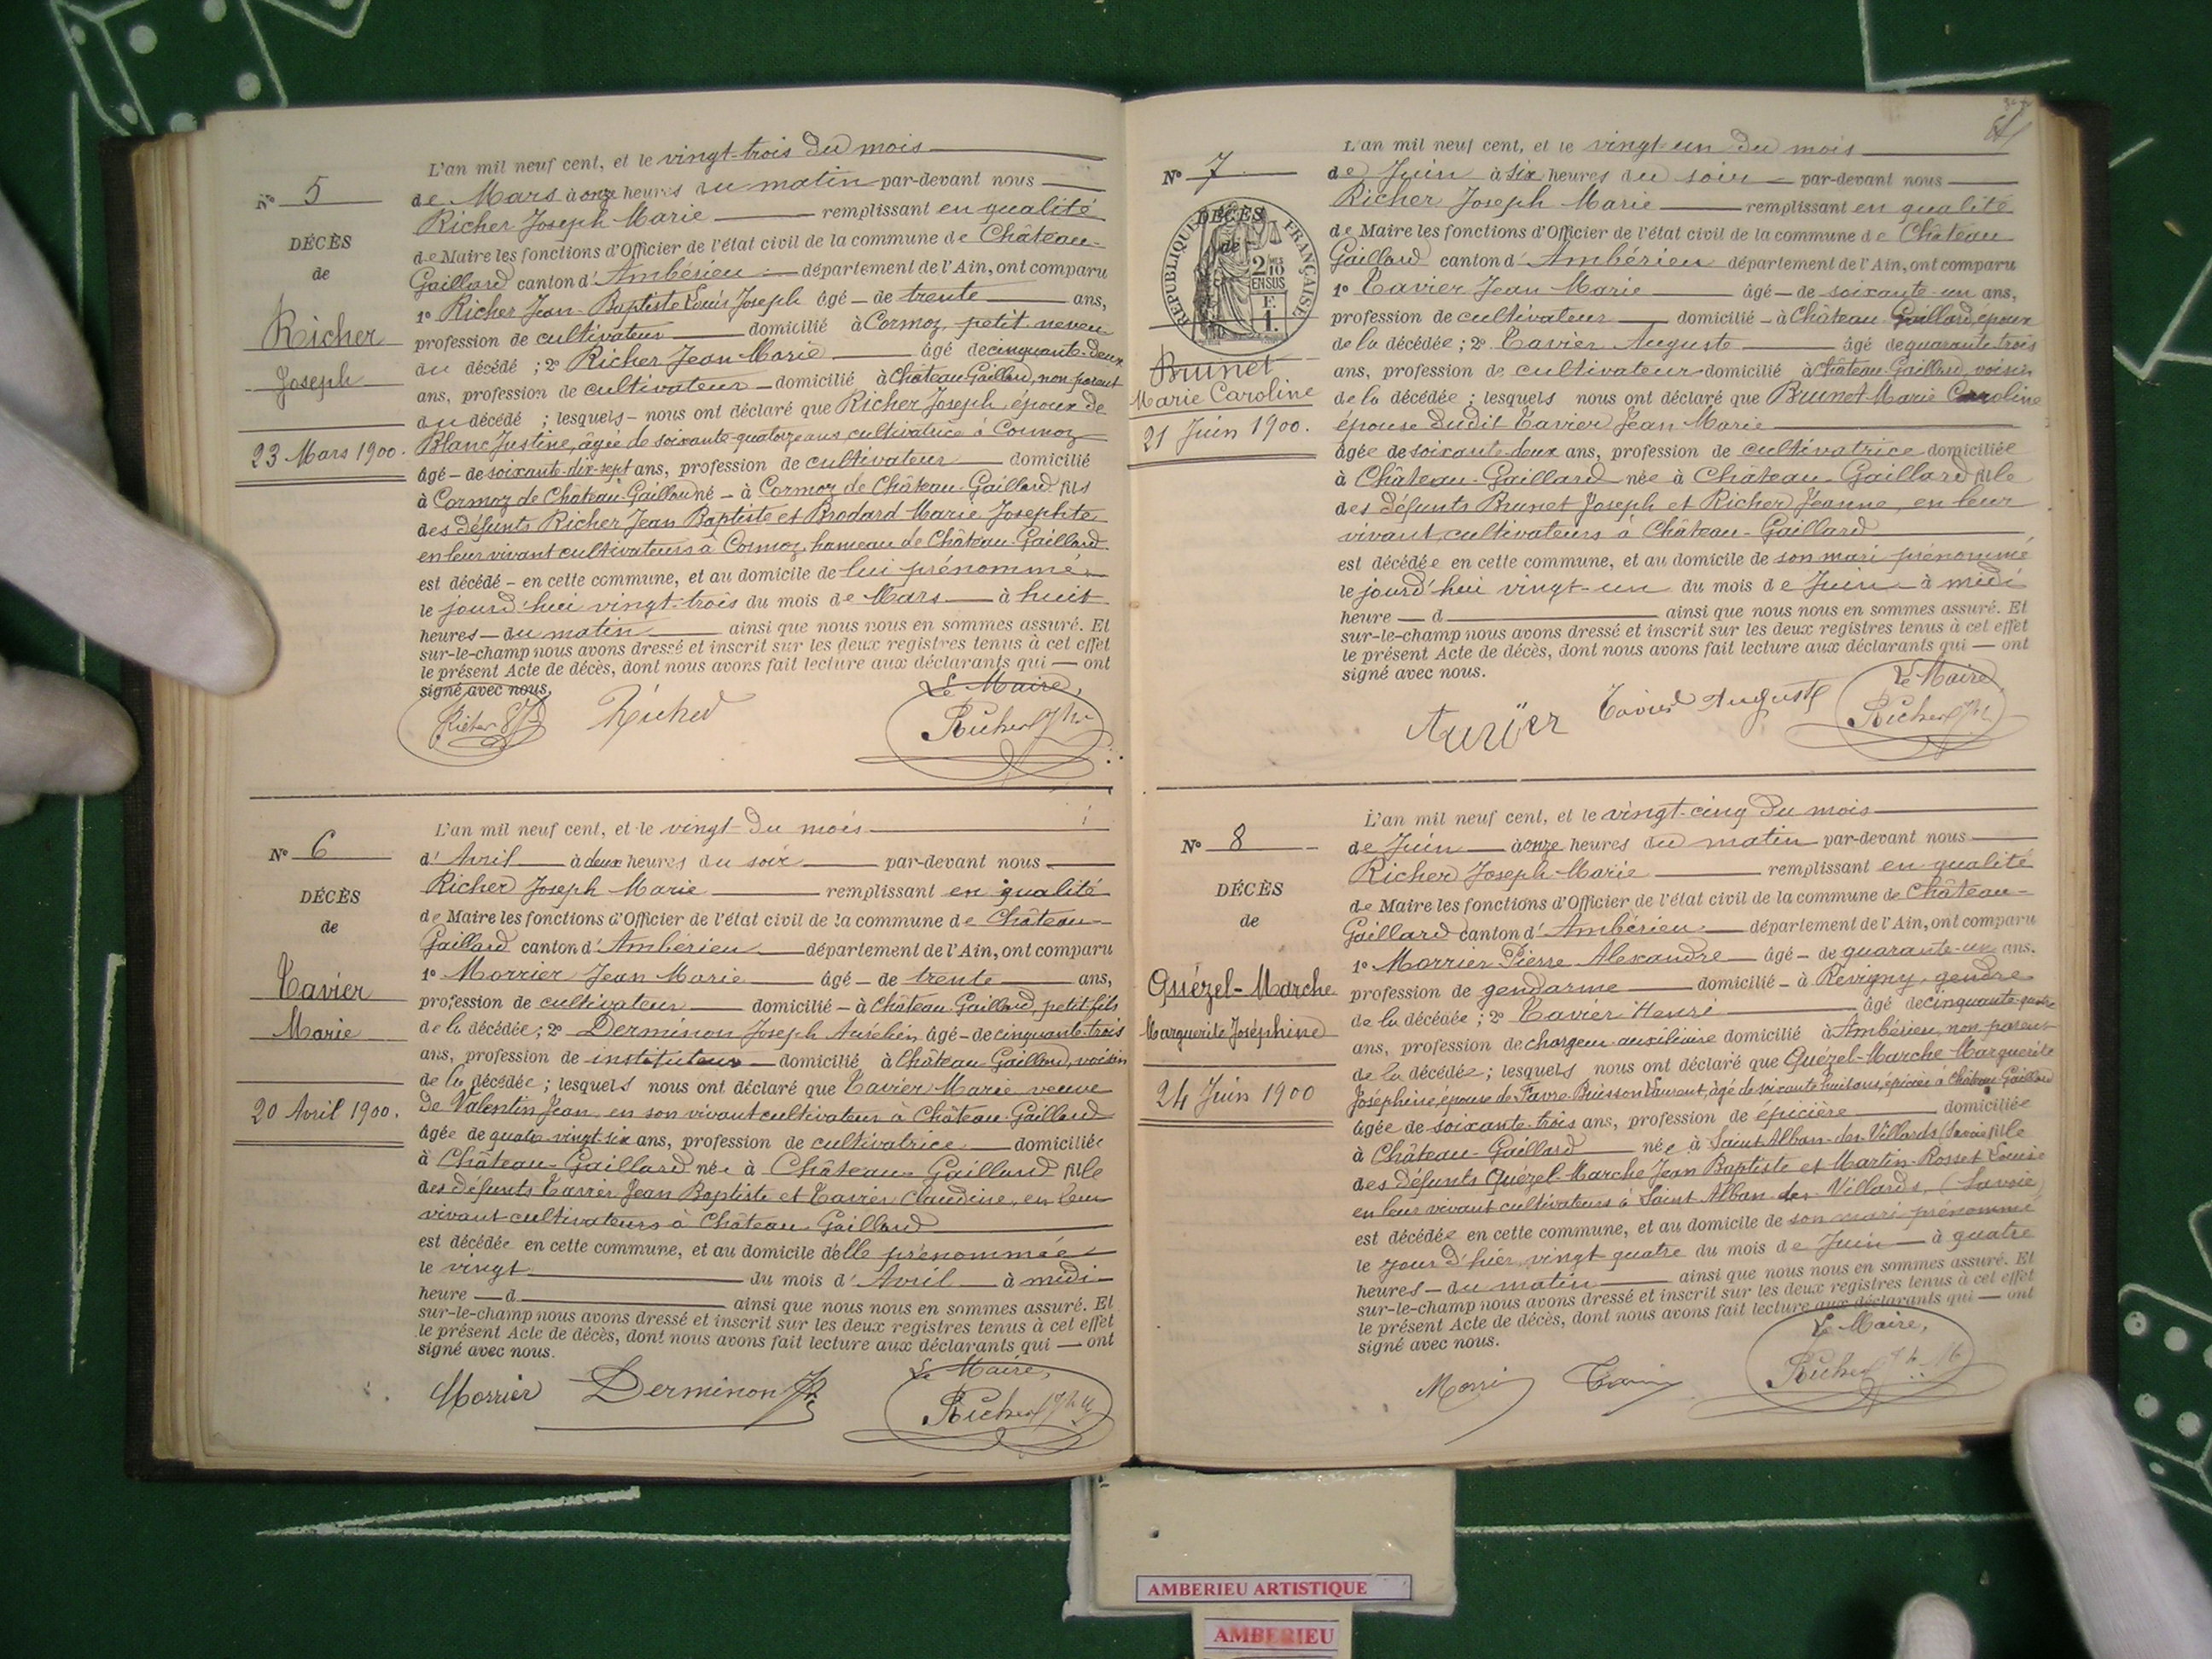 N° 5
DÉCÈS
de
Richer
Joseph
23 Mars 1900.
L'an mil neuf cent, et le vingt-trois du mois
de Mars à onze heures du matin par-devant nous
Richer Joseph Marie remplissant en qualité
de Maire les fonctions d'Officier de l'état civil de la commune de Château-
Gaillard canton d'Ambérieu département de l'Ain, ont comparu
1° Richer Jean-Baptiste Louis Joseph âgé de trente ans,
profession de cultivateur domicilié à Cormoz, petit-neveu
du décédé ; 2° Richer Jean Marie âgé de cinquante-deux
ans, profession de cultivateur domicilié à Château-Gaillard, non parent
du décédé ; lesquels nous ont déclaré que Richer Joseph, époux de
Blanc Justine, âgée de soixante-quatorze ans cultivatrice à Cormoz
âgé de soixante-dix-sept ans, profession de cultivateur domicilié
à Cormoz de Château-Gaillard né à Cormoz de Château-Gaillard fils
des défunts Richer Jean Baptiste et Brodard Marie Josephte
en leur vivant cultivateurs à Cormoz, hameau de Château-Gaillard
est décédé en cette commune, et au domicile de lui prénommé
le jourd'hui vingt-trois du mois de Mars à huit
heures du matin ainsi que nous nous en sommes assuré. Et
sur-le-champ nous avons dressé et inscrit sur les deux registres tenus à cet effet
le présent Acte de décès, dont nous avons fait lecture aux déclarants qui ont
signé avec nous.
Le Maire,
Richer Richer Richer
N° 6
DÉCÈS
de
Tavier
Marie
20 Avril 1900.
L'an mil neuf cent, et le vingt du mois
d'Avril à deux heures du soir par-devant nous
Richer Joseph Marie remplissant en qualité
de Maire les fonctions d'Officier de l'état civil de la commune de Château-
Gaillard canton d'Ambérieu département de l'Ain, ont comparu
1° Morrier Jean Marie âgé de trente ans,
profession de cultivateur domicilié à Château-Gaillard, petit-fils
de la décédée ; 2° Derminon Joseph Aurélien âgé de cinquante-trois
ans, profession de instituteur domicilié à Château-Gaillard, voisin
de la décédée ; lesquels nous ont déclaré que Tavier Marie veuve
de Valentin Jean en son vivant cultivateur à Château-Gaillard
âgée de quatre-vingt-six ans, profession de cultivatrice domiciliée
à Château-Gaillard née à Château-Gaillard fille
des défunts Tavier Jean Baptiste et Tavier Claudine, en leur
vivant cultivateurs à Château-Gaillard
est décédée en cette commune, et au domicile d'elle prénommée
le vingt du mois d'Avril à midi
heure d ainsi que nous nous en sommes assuré. Et
sur-le-champ nous avons dressé et inscrit sur les deux registres tenus à cet effet
le présent Acte de décès, dont nous avons fait lecture aux déclarants qui ont
signé avec nous.
Le Maire,
Morrier Derminon Richer
N° 7
DÉCÈS
de
RÉPUBLIQUE FRANÇAISE
2/10
EN SUS
F.
1.
Brunet
Marie Caroline
21 Juin 1900.
L'an mil neuf cent, et le vingt-un du mois
de Juin à six heures du soir par-devant nous
Richer Joseph Marie remplissant en qualité
de Maire les fonctions d'Officier de l'état civil de la commune de Château
Gaillard canton d'Ambérieu département de l'Ain, ont comparu
1° Tavier Jean Marie âgé de soixante-un ans,
profession de cultivateur domicilié à Château-Gaillard, époux
de la décédée ; 2° Tavier Auguste âgé de quarante-trois
ans, profession de cultivateur domicilié à Château-Gaillard, voisin
de la décédée ; lesquels nous ont déclaré que Brunet Marie Caroline
épouse dudit Tavier Jean Marie
âgée de soixante-deux ans, profession de cultivatrice domiciliée
à Château-Gaillard née à Château-Gaillard fille
des défunts Brunet Joseph et Richer Jeanne, en leur
vivant cultivateurs à Château-Gaillard
est décédée en cette commune, et au domicile de son mari prénommé
le jourd'hui vingt-un du mois de Juin à midi
heure d ainsi que nous nous en sommes assuré. Et
sur-le-champ nous avons dressé et inscrit sur les deux registres tenus à cet effet
le présent Acte de décès, dont nous avons fait lecture aux déclarants qui ont
signé avec nous.
Le Maire,
Tavier Auguste Richer
N° 8
DÉCÈS
de
Quézel-Marche
Marguerite Joséphine
24 Juin 1900
L'an mil neuf cent, et le vingt-cinq du mois
de Juin à onze heures du matin par-devant nous
Richer Joseph-Marie remplissant en qualité
de Maire les fonctions d'Officier de l'état civil de la commune de Château-
Gaillard canton d'Ambérieu département de l'Ain, ont comparu
1° Morrier Pierre Alexandre âgé de quarante-un ans.
profession de gendarme domicilié à Revigny, gendre
de la décédée ; 2° Tavier Henri âgé de cinquante-quatre
ans, profession de chargeur auxiliaire domicilié à Ambérieu, non parent
de la décédée ; lesquels nous ont déclaré que Quézel-Marche Marguerite
Joséphine, épouse de Favre-Buisson Laurent, âgé de soixante huit ans, épicier à Château-Gaillard
âgée de soixante-trois ans, profession de épicière domiciliée
à Château-Gaillard née à Saint Alban-des-Villards (Savoie) fille
des défunts Quézel-Marche Jean Baptiste et Martin-Rosset Louise
en leur vivant cultivateurs à Saint Alban-des-Villards, (Savoie)
est décédée en cette commune, et au domicile de son mari prénommé
le jour d'hier, vingt-quatre du mois de Juin à quatre
heures du matin ainsi que nous nous en sommes assuré. Et
sur-le-champ nous avons dressé et inscrit sur les deux registres tenus à cet effet
le présent Acte de décès, dont nous avons fait lecture aux déclarants qui ont
signé avec nous.
Le Maire,
Richer
AMBERIEU ARTISTIQUE
AMBERIEU